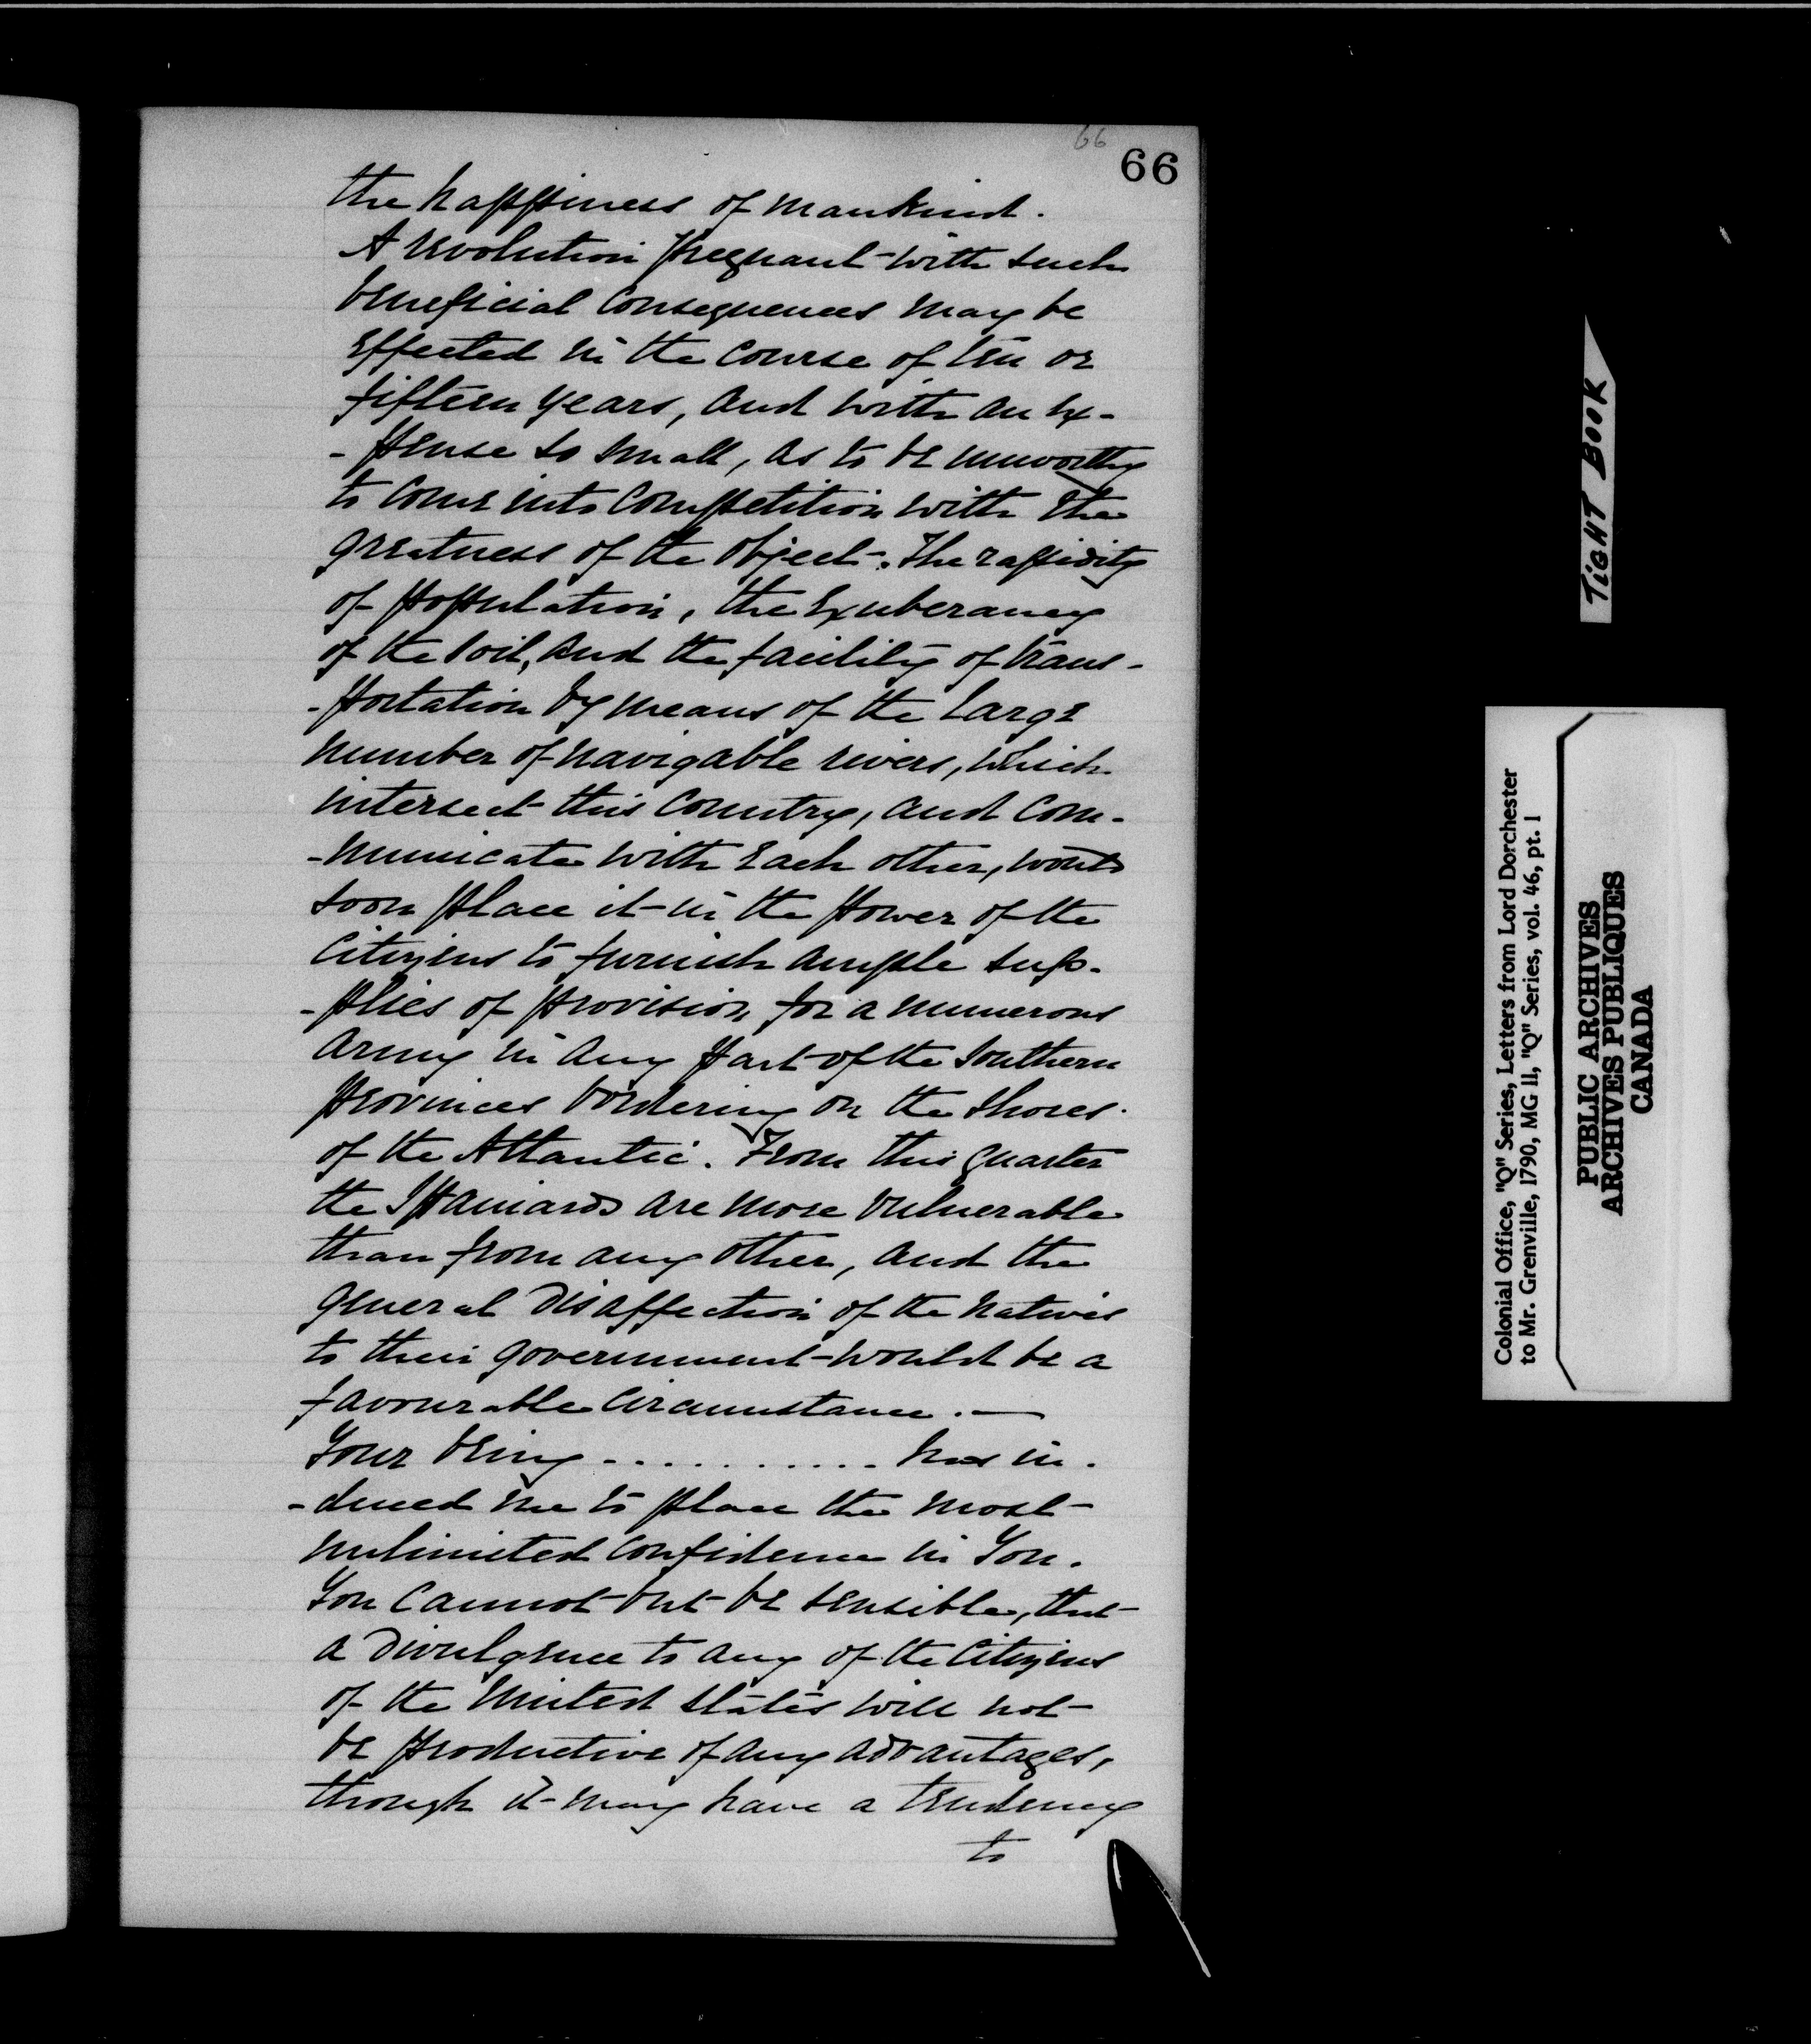 66
66
the happiness of mankind.
A revolution pregnant with such
beneficial consequences may be
effected in the course of ten or
fifteen years, and with an ex-
-pense so small, as to be unworthy
to come into competition with the
greatness of the object. The rapidity
of population, the exuberancy
of the soil, and the facility of trans-
-portation by means of the large
number of navigable rivers, which
intersect this Country, and com-
-municate with each other, would
soon place it in the power of the
Citizens to furnish ample sup-
-plies of provision for a numerous
army in any part of the Southern
provinces bordering on the shores
of the Atlantic. From this quarter
the Spaniards are more vulnerable
than from any other, and the
general disaffection of the natives
to their government would be a
favourable circumstance. —
Your being ........... has in-
-duced me to place the most
unlimited confidence in You.
You cannot but be sensible, that
a divulgence to any of the Citizens
of the United States will not
be productive of any advantages,
though it may have a tendency
to
TIGHT BOOK
Colonial Office, "Q" Series, Letters from Lord Dorchester
to Mr. Grenville, 1790, MG 11, "Q" Series, vol. 46, pt. 1
PUBLIC ARCHIVES
ARCHIVES PUBLIQUES
CANADA